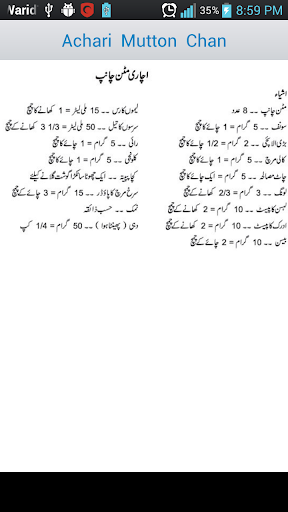 Warid
35% 8:59 PM
Achari Mutton Chan
اچاری مٹن چانپ
اشیاء
مٹن چانپ ۔۔ 8 عدد
سونف ۔۔ 5 گرام = 1 چائے کا چمچ
بڑی الائچی ۔۔ 2 گرام = 1/2 چائے کا چمچ
کالی مرچ ۔۔ 5 گرام = 1 چائے کا چمچ
چاٹ مصالحہ ۔۔ 5 گرام = ایک چائے کا چمچ
لونگ ۔۔ 3 گرام = 2/3 چائے کا چمچ
لہسن کا پیسٹ ۔۔ 10 گرام = 2 کھانے کے چمچ
ادرک کا پیسٹ ۔۔ 10 گرام = 2 کھانے کے چمچ
بیسن ۔۔ 10 گرام = 2 چائے کے چمچ
لیموں کا رس ۔۔ 15 ملی لیٹر = 1 کھانے کا چمچ
سرسوں کا تیل ۔۔ 50 ملی لیٹر = 3 1/3 کھانے کے چمچ
رائی ۔۔ 5 گرام = 1 چائے کا چمچ
کلونجی ۔۔ 5 گرام = 1 چائے کا چمچ
کچا پپیتہ ۔۔ ایک چھوٹا سا ٹکڑا گوشت گلانے کیلئے
سرخ مرچ کا پاؤڈر ۔۔ 15 گرام = 3 چائے کے چمچ
نمک ۔۔ حسب ذائقہ
دہی ( پھینٹا ہوا ) ۔۔ 50 گرام = 1/4 کپ